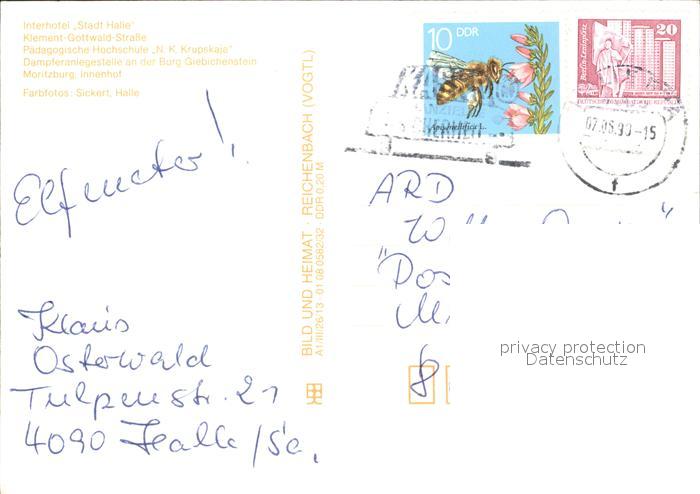 Interhotel „Stadt Halle"
Klement-Gottwald-Straße
Pädagogische Hochschule „N. K. Krupskaja"
Dampferanlegestelle an der Burg Giebichenstein
Moritzburg, Innenhof
Farbfotos: Sickert, Halle
Elfmeter!
Klaus
Osterwald
Tulpenstr. 21
4090 Halle/Sa.
BILD UND HEIMAT · REICHENBACH (VOGTL)
A1/III/26/13 01 08 0582/32 DDR 0,20 M
10 DDR
Apis mellifica L.
20
Berlin-Leninplatz
DEUTSCHE DEMOKRATISCHE REPUBLIK
07.06.90-15
f
ARD
"Pos
8
privacy protection
Datenschutz